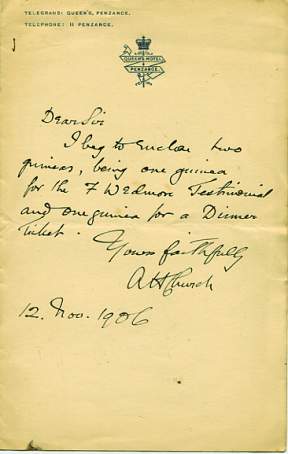 TELEGRAMS: QUEEN'S, PENZANCE.
TELEPHONE: 11 PENZANCE.
QUEEN'S HOTEL
PENZANCE.
Dear Sir
I beg to enclose two
guineas, being one guinea
for the F Wedmore Testimonial
and one guinea for a Dinner
Ticket.
Yours faithfully
A H Church
12. Nov. 1906